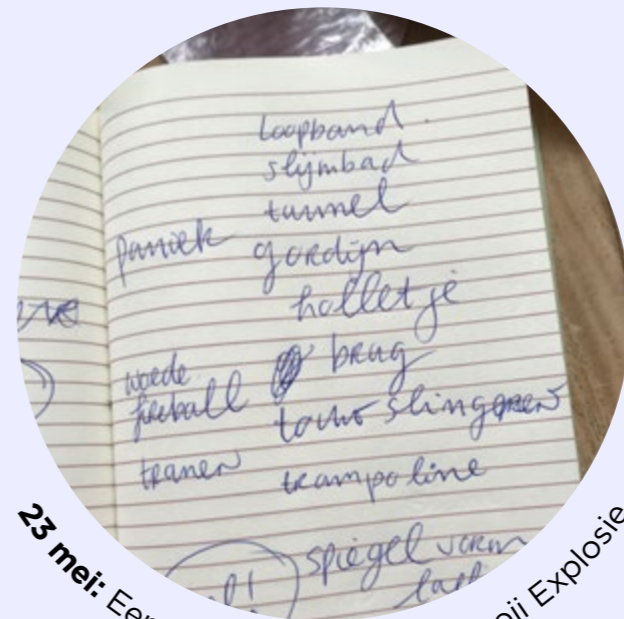 loopband
slijmbad
tunnel
paniek gordijn
holletje
woede brug
fireball slingeren
tranen trampoline
spiegel vorm
23 mei: Een
Explosie